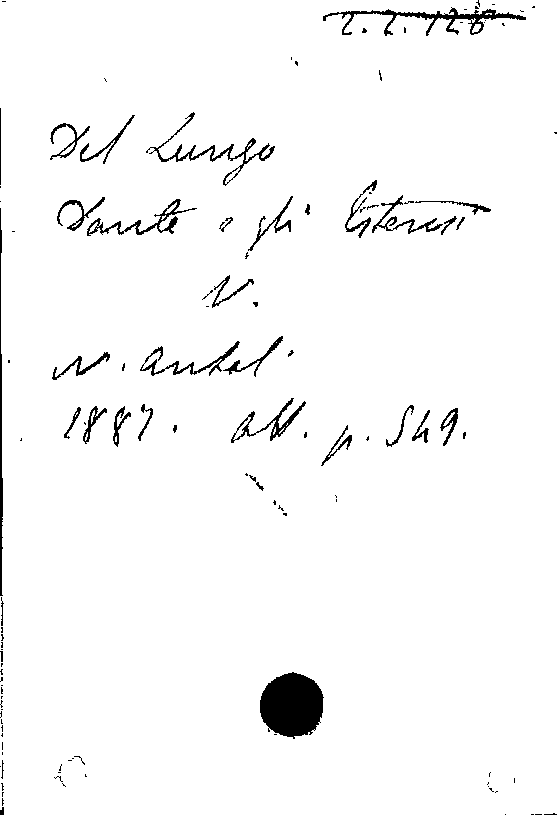 2.2.126
Del Lungo
Dante e gli Estensi
N.
N. Antol.
1887. Ott. p. 549.